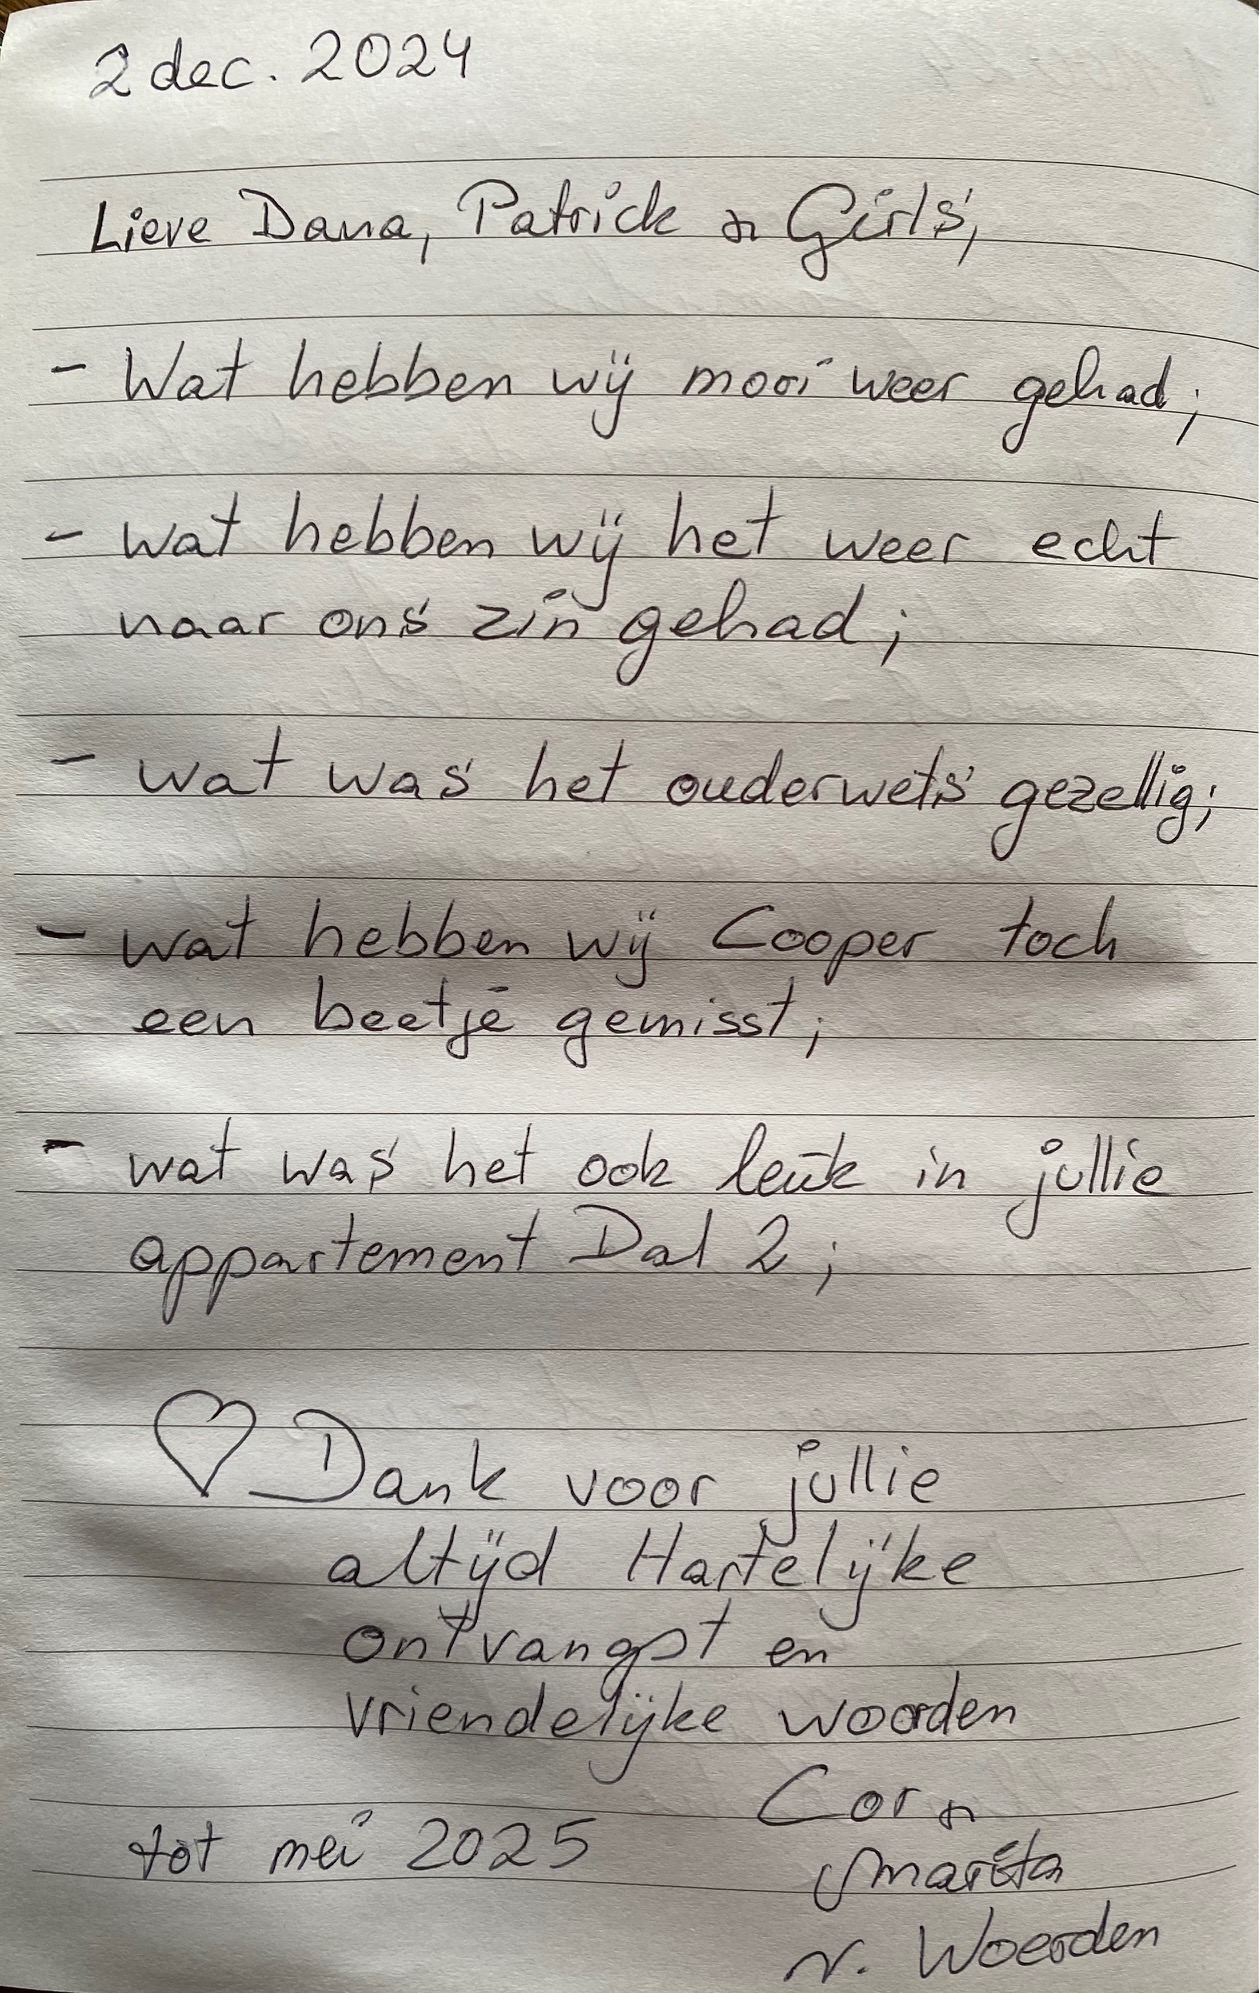 2 dec. 2024
Lieve Dana, Patrick & Girls,
- Wat hebben wij mooi weer gehad;
- wat hebben wij het weer echt
naar ons zin gehad;
- wat was het ouderwets gezellig;
- wat hebben wij Cooper toch
een beetje gemisst;
- wat was het ook leuk in jullie
appartement Dal 2;
♡ Dank voor jullie
altijd Hartelijke
ontvangst en
vriendelijke woorden
Cor &
tot mei 2025
Marita
v. Woerden